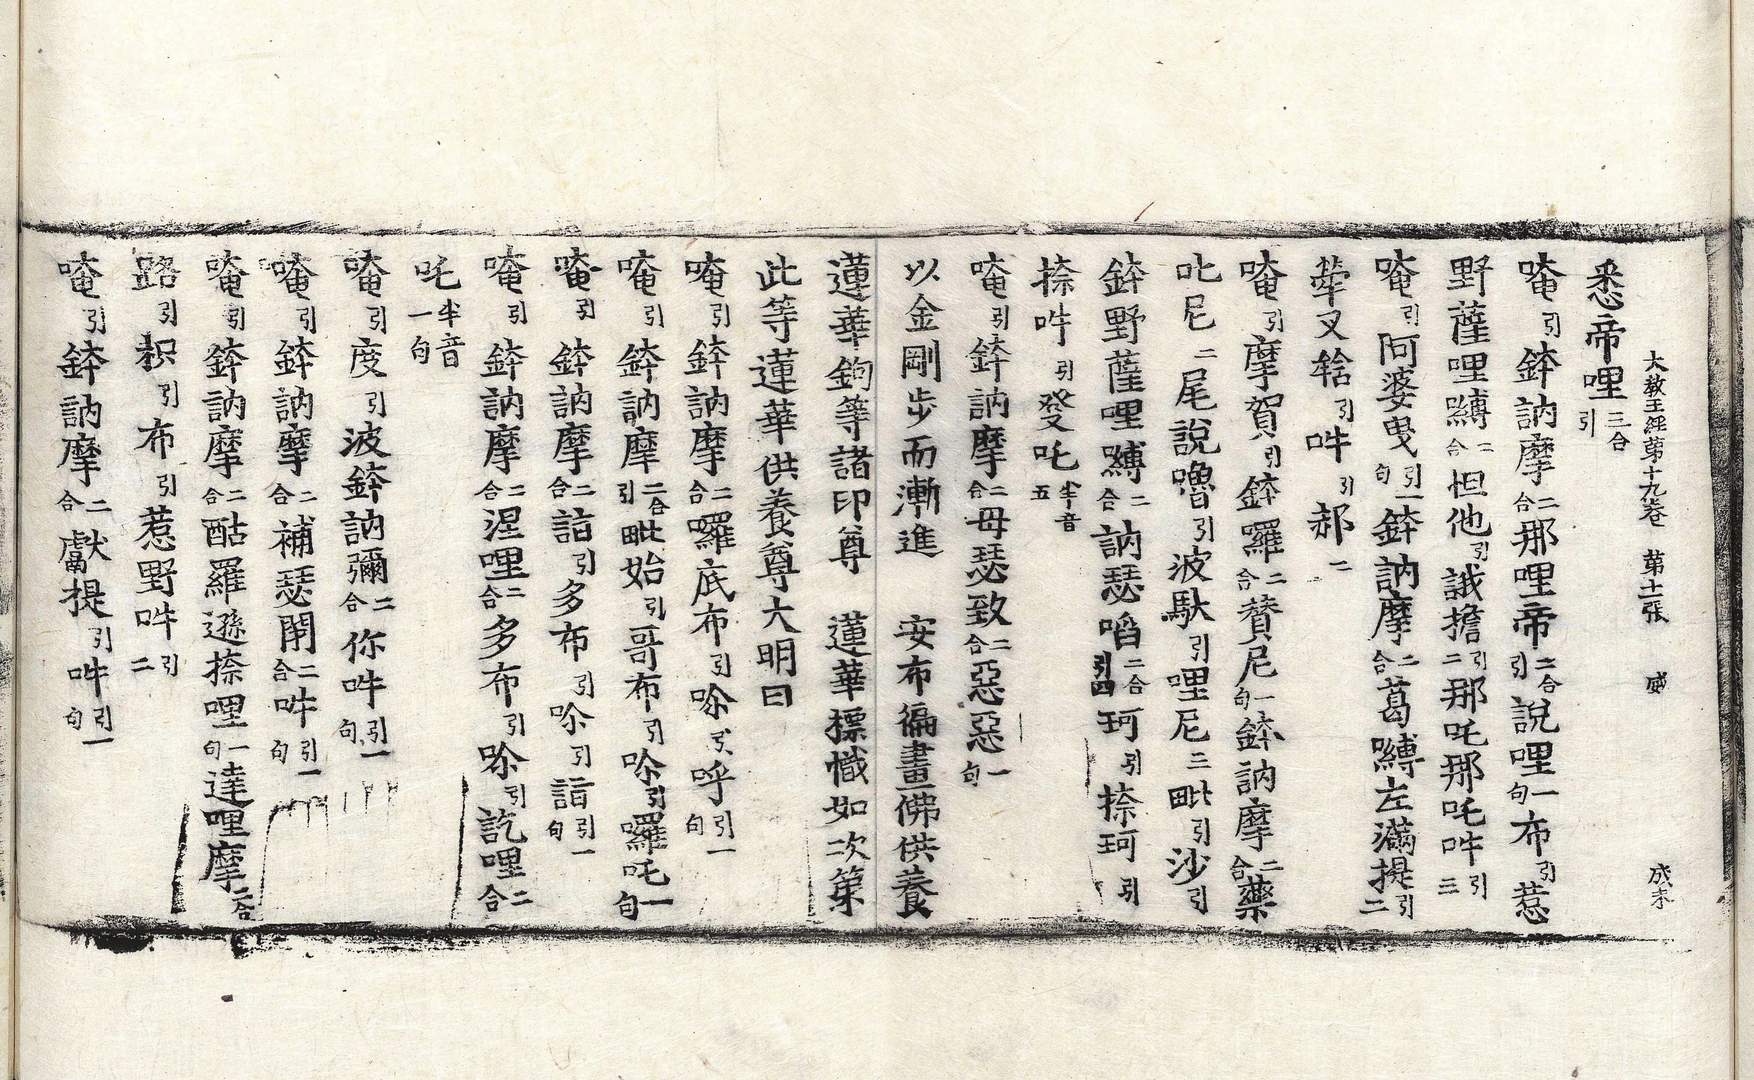 大教王經第十九卷　第十一張　威　成未
悉帝哩三合引
唵引鉢訥摩二合那哩帝二合引說哩一句布引惹
野薩哩嚩二合怛他引誐擔引二那吒那吒吽引三
唵引阿婆曳引一句鉢訥摩二合葛嚩左滿提引二
犖叉𤚥引吽引郝二
唵引摩賀引鉢囉二合贊尼一句鉢訥摩二合藥
叱尼二尾說嚕引波馱引哩尼三毗引沙引
鉢野薩哩嚩二合訥瑟㗖二合引四珂引捺珂引
捺吽引癹吒半音五
唵引鉢訥摩二合母瑟致二合惡惡一句
以金剛步而漸進　安布徧畫佛供養
蓮華鉤等諸印尊　蓮華摽幟如次第
此等蓮華供養尊大明曰
唵引鉢訥摩二合囉底布引𠷑引呼引一句
唵引鉢訥摩二合引毗始引哥布引𠷑引囉吒一句
唵引鉢訥摩二合詣引多布引𠷑引詣引一句
唵引鉢訥摩二合涅哩二合多布引𠷑引訖哩二合
吒半音一句
唵引度引波鉢訥彌二合你吽引一句
唵引鉢訥摩二合補瑟閉二合吽引一句
唵引鉢訥摩二合酤羅遜捺哩一句達哩摩二合
路引枳引布引惹野吽引二
唵引鉢訥摩二合獻提引吽引一句